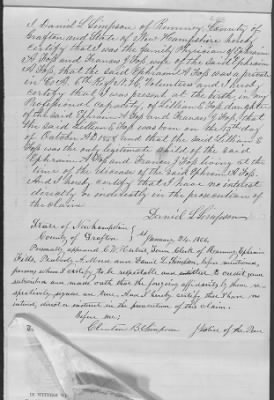 I Daniel L Simpson of Rumney County of
Grafton and State of New Hampshire hereby
certify that I was the family Physician of Ephraim
A Foss and Frances J Foss wife of the said Ephraim
A Foss, that the said Ephraim A Foss was a private
in Co 6th N. H. Volunteers and I hereby
certify that I was present at the birth, in my
Professional Capacity, of Lillian E Foss daughter
of the said Ephraim A Foss and Frances J Foss; that
the said Lillian E Foss was born on the
October A.D. and that the said Lillian E
Foss was the only legitimate child of the said
Ephraim A Foss and Frances J Foss living at the
time of the decease of the said Ephraim A Foss.
And I hereby certify that I have no interest
directly or indirectly in the prosecution of
the claim
Daniel L Simpson
State of New Hampshire
County of Grafton January 24, 1866.
Personally appeared Town Clerk of Rumney, Ephraim
Peabody A. Morse and Daniel L. Simpson, before mentioned,
persons whom I certify to be respectable and entitled to credit
and made oath that the foregoing affidavits by them
are true. And I hereby certify that I have no
interest, direct or indirect in the prosecution of this claim.
Before me;
Justice of the Peace
IN WITNESS